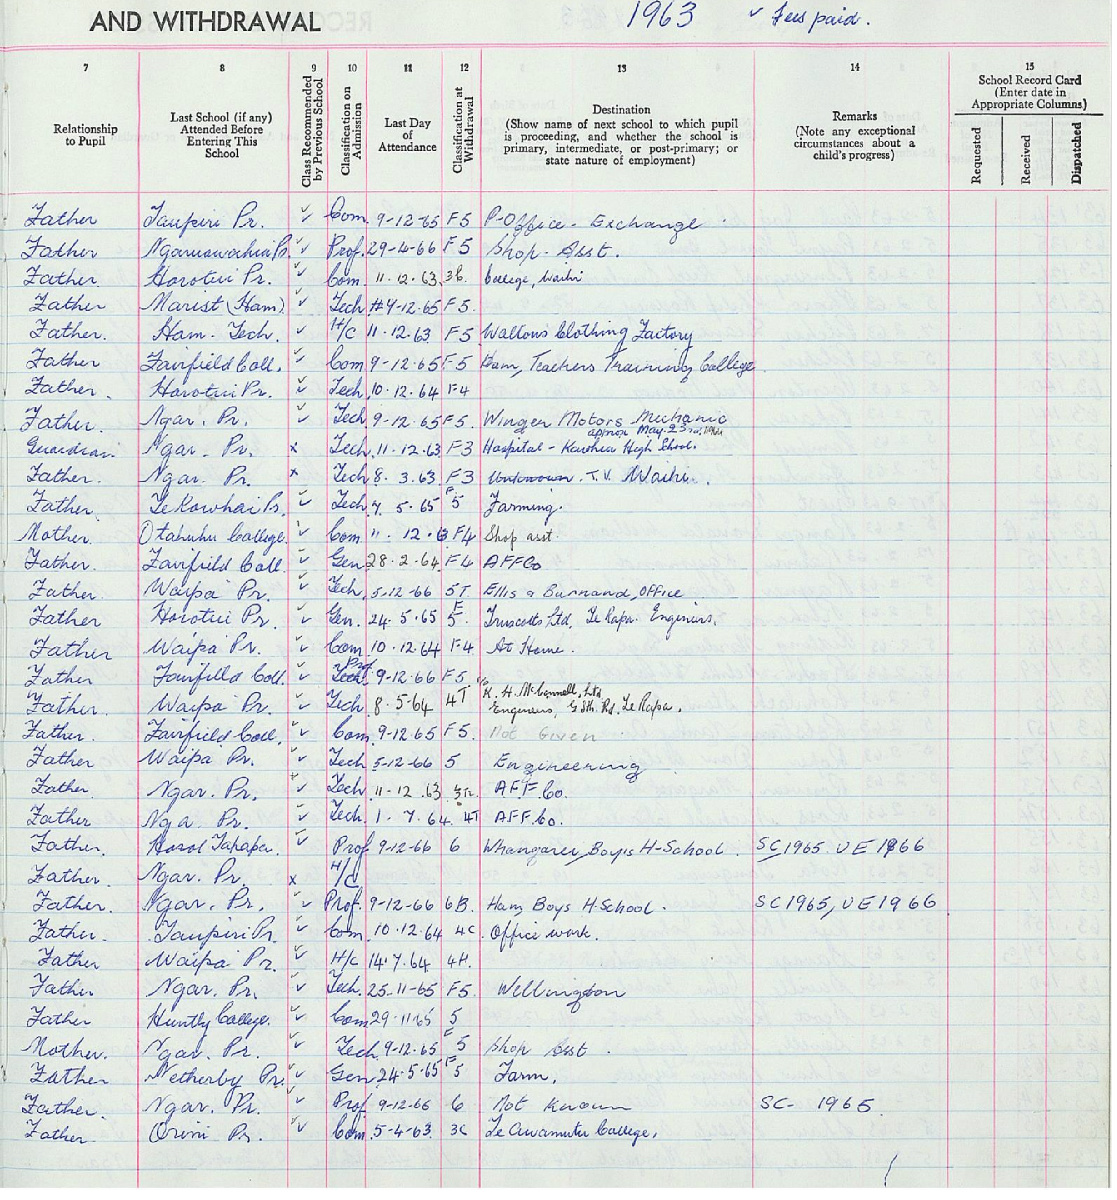 AND WITHDRAWAL 1963 ✓ Fees paid.
7 8 9 10 11 12 13 14 15
Relationship to Pupil
Last School (if any) Attended Before Entering This School
Class Recommended by Previous School
Classification on Admission
Last Day of Attendance
Classification at Withdrawal
Destination (Show name of next school to which pupil is proceeding, and whether the school is primary, intermediate, or post-primary; or state nature of employment)
Remarks (Note any exceptional circumstances about a child's progress)
School Record Card (Enter date in Appropriate Columns)
Requested Received Dispatched
Father Taupiri Pr. ✓ Com. 9-12-65 F5 P-Office - Exchange
Father Ngaruawahia Pr. ✓ Prof. 29-4-66 F5 Shop-Asst.
Father Horotiu Pr. ✓ Com. 11.12.63 3B. College, Waihi
Father Marist (Ham) ✓ Tech 4-12-65 F5.
Father. Ham. Tech. ✓ H/C 11.12.63 F5 Waltons Clothing Factory
Father Fairfield Coll. ✓ Com 9-12-65 F5 Ham, Teachers Training College
Father. Horotiu Pr. ✓ Tech. 10.12.64 F4
Father. Ngar. Pr. ✓ Tech. 9-12-65 F5. Winger Motors Mechanic
Guardian. Ngar. Pr. x Tech. 11.12.63 F3 Hospital - Kawhia High School.
Father. Ngar. Pr. x Tech 8.3.63 F3 Unknown. T.V. Waihi.
Father. Te Kowhai Pr. ✓ Tech 7.5.65 F5 Farming.
Mother. Otahuhu College. ✓ Com. 11.12.63 F4 Shop asst
Father. Fairfield Coll. ✓ Gen. 28.2.64 F4 AFFCo
Father. Waipa Pr. ✓ Tech. 5-12-66 5T Ellis & Burnand, Office
Father Horotiu Pr. ✓ Gen. 24.5.65 F5. Truscotts Ltd, Te Rapa. Engineers.
Father Waipa Pr. ✓ Com. 10.12.64 F4 At Home.
Father Fairfield Coll. ✓ Tech. Prof 9-12-66 F5
Father Waipa Pr. ✓ Tech 8.5-64 4T K. H. McConnell, Ltd
Engineers, Gth. Rd. Te Rapa.
Father Fairfield Coll. ✓ Com. 9-12.65 F5. Not Given
Father Waipa Pr. ✓ Tech 5-12-66 5 Engineering
Father. Ngar. Pr. ✓ Tech 11-12.63 3T2. A.F.F.Co.
Father Nga. Pr. ✓ Tech. 1.7.64. 4T AFF.Co.
Father. ✓ Prof 9-12-66 6 Whangarei Boys H-School. SC 1965. UE 1966
Father. Ngar. Pr. x H/C
Father. Ngar. Pr. ✓ Prof. 9-12-66 6B. Ham, Boys H School. SC 1965, UE 1966
Father Taupiri Pr. ✓ Com. 10.12.64 4C. Office work.
Father Waipa Pr. ✓ H/C 14.7.64 4H.
Father Ngar. Pr. ✓ Tech. 25.11-65 F5. Wellington
Father Huntly College. ✓ Com 29-11-65 5
Mother. Ngar. Pr. ✓ Tech. 9-12.65 F5 Shop Asst.
Father Netherby Pr. ✓ Gen 24.5.65 F5 Farm.
Father. Ngar. Pr. ✓ Prof 9-12-66 6 Not Known SC- 1965.
Father Orini Pr. ✓ Com 5-4-63 3C Te Awamutu College.